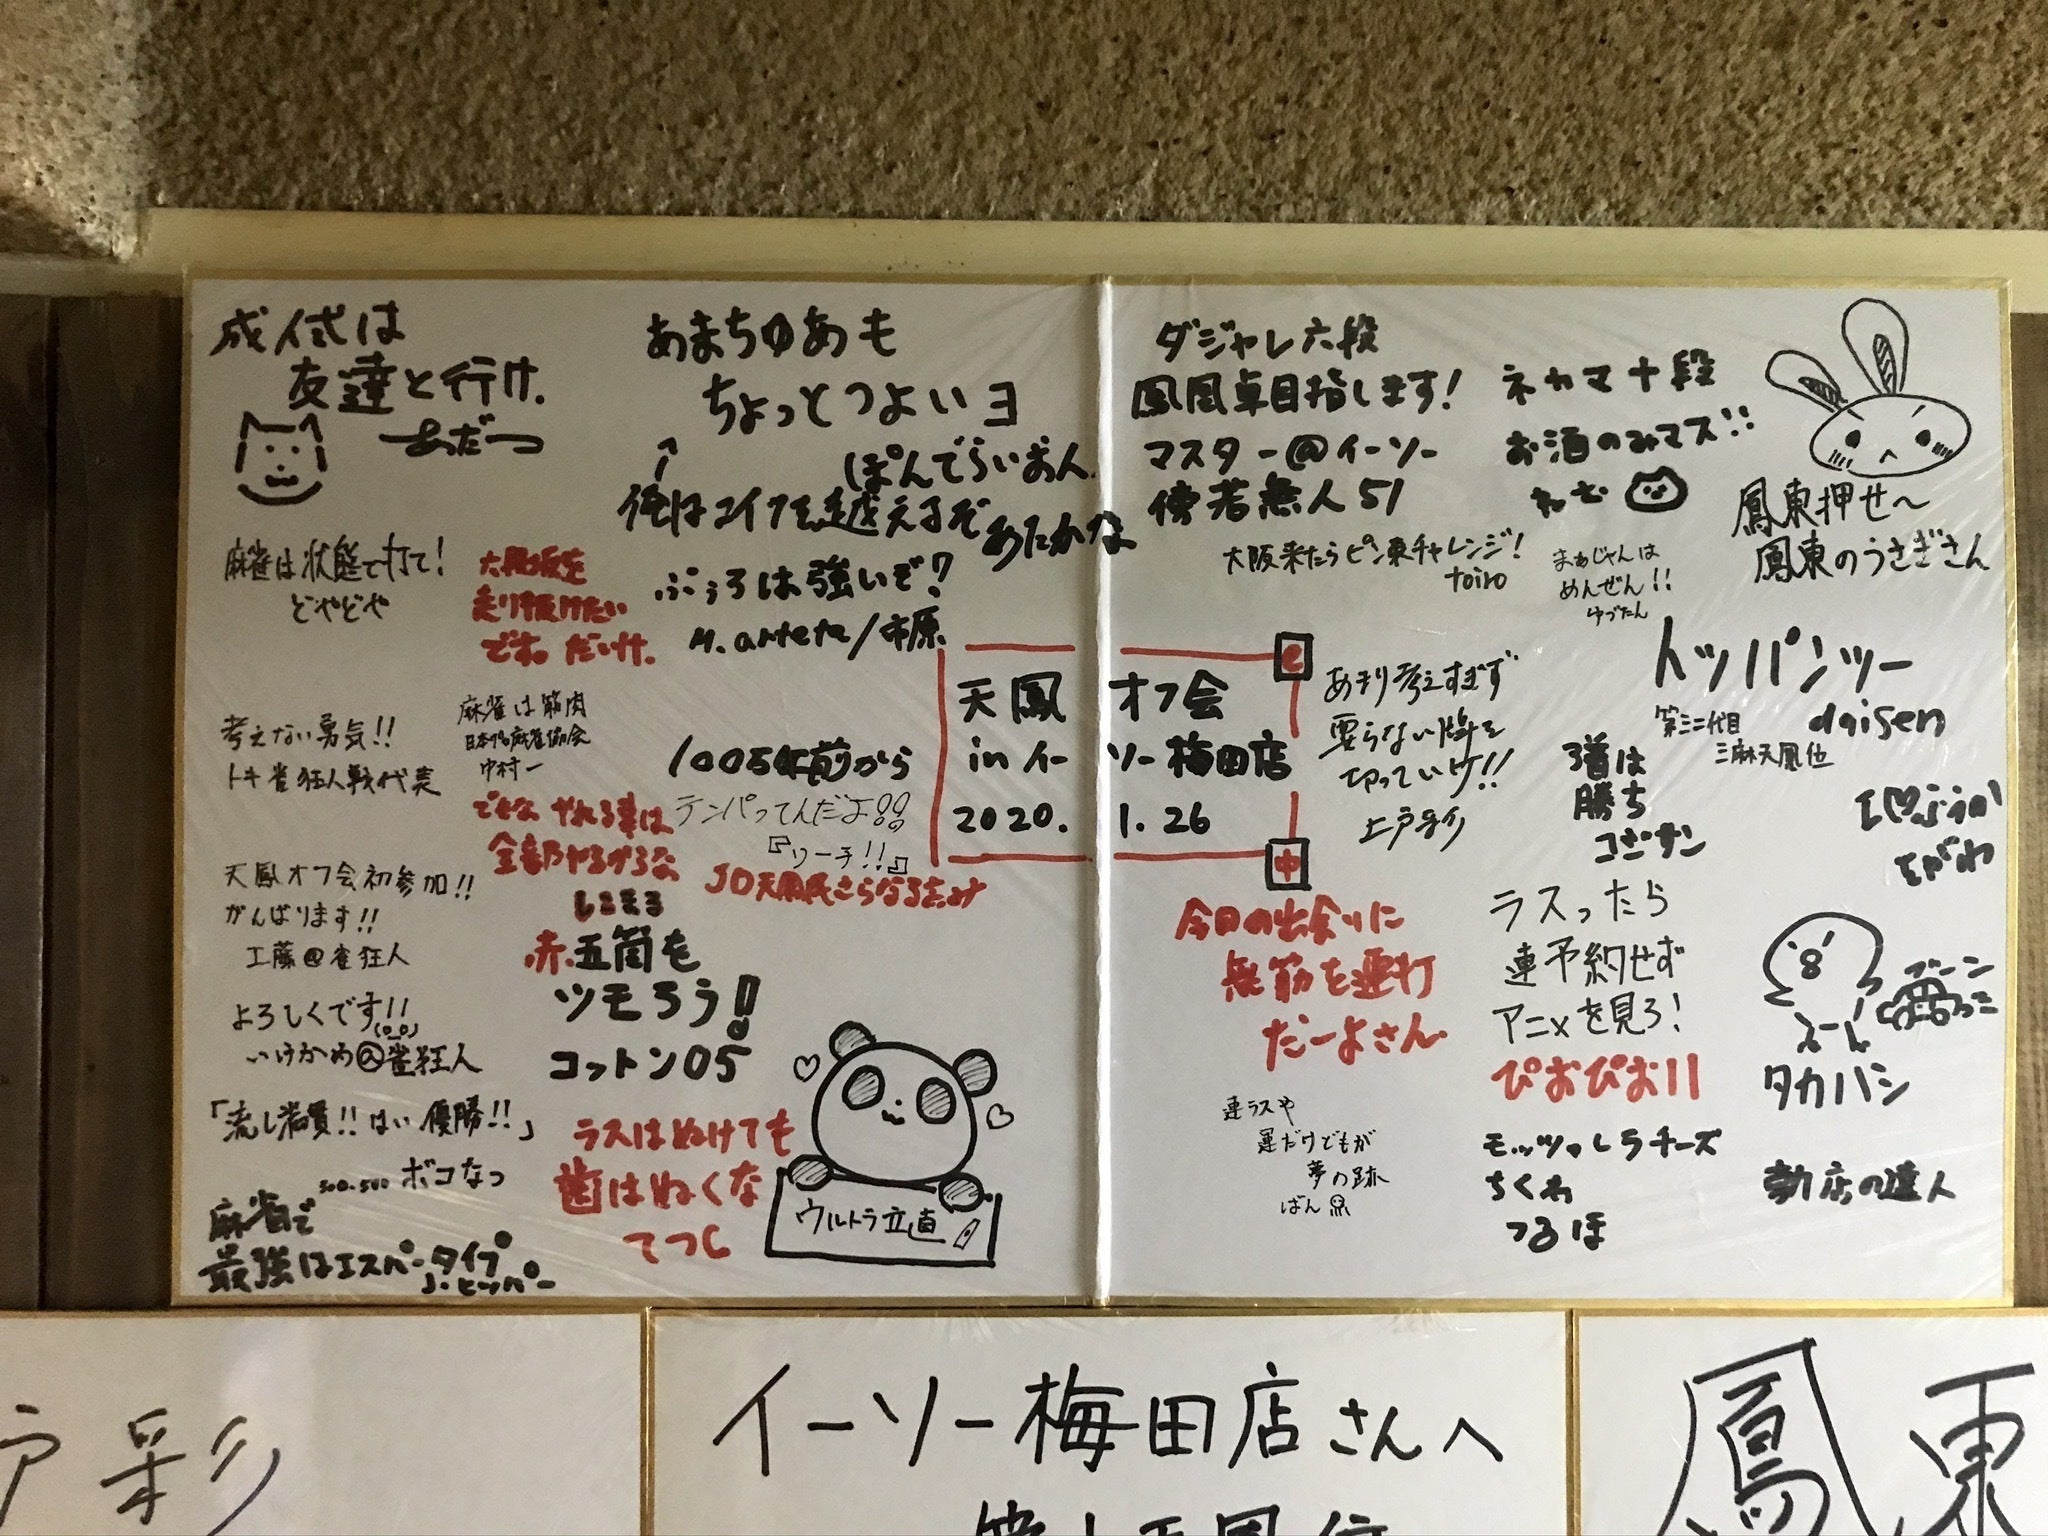 成人式は
友達と行け.
あだーつ
あまちゅあも
ちょっとつよいヨ
ぽんでらいおん.
↑
俺はコイツを越えるぞ
あたかな
麻雀は状態で打て!
どやどや
大阪を
走り抜けたい
です。だいけ.
ふぅろは強いぞ?
M.arteta/市原
考えない勇気!!
トキ雀狂人戦代表
麻雀は筋肉
日本プロ麻雀協会
中村一
1005年前から
テンパってんだよ!!
『リーチ!!』
やれる事は
全部やるからな
JD天鳳民さらなる高み
天鳳オフ会初参加!!
がんばります!!
工藤@雀狂人
赤五筒も
ツモろう!
コットン05
よろしくです!!
いけかめ@雀狂人
「流し満貫!!はい優勝!!」
ボコなっ
麻雀で
最強はエスパータイプ
J・ヒッパー
ラスはぬけても
歯はぬくな
てつし
ウルトラ立直
天鳳 オフ会
in イーソー梅田店
2020. 1. 26
中
ダジャレ六段
鳳凰卓目指します!
マスター@イーソー
傍若無人51
ネカマ十段
お酒のみマス!!
ねむ
鳳東押せ〜
鳳東のうさぎさん
大阪来たらピン東チャレンジ!
toiro
まぁじゃんは
めんぜん!!
ゆづたん
あまり考えすぎず
要らない牌を
切っていけ!!
上戸彩
トップパンツー
daisen
第三二代目
三麻天鳳位
3着は
勝ち
コジサン
I♡ふうか
ちがわ
今日の出会いに
無筋を連打
だーよさん
ラスったら
連予約せず
アニメを見ろ!
ぴおぴお11
ブーン
えーん
タカハシ
連ラスや
運だけどもが
夢の跡
ばん
モッツァレラチーズ
ちくわ
つるほ
勤店の達人
戸彩
イーソー梅田店さんへ
鳳東